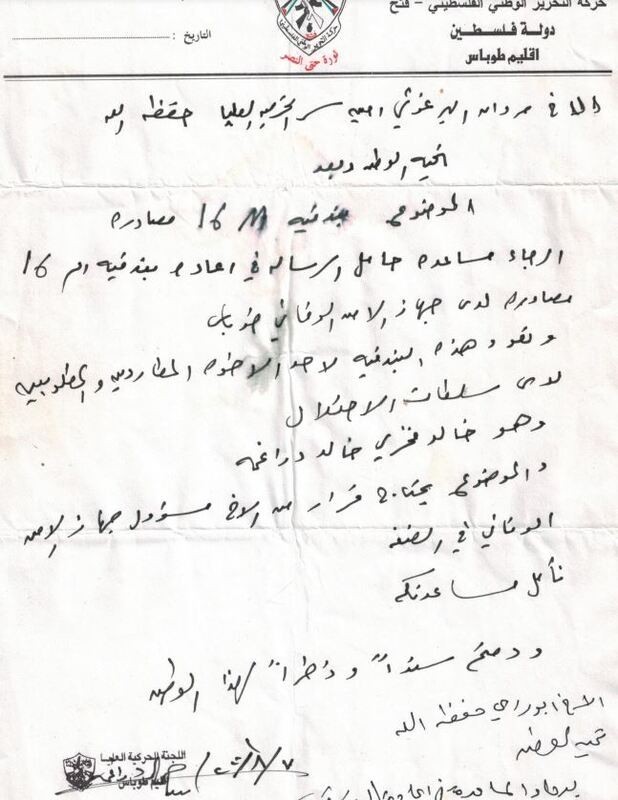 حركة التحرير الوطني الفلسطيني - فتح
دولة فلسطين
اقليم طوباس
التاريخ :
ثورة حتى النصر
الاخ مروان البرغوثي امين سر الحركية العليا حفظه الله
تحية الوطن وبعد
الموضوع بندقيه M 16 مصادره
الرجاء مساعده حامل الرساله في اعاده بندقيه ام 16
مصادره لدى جهاز الامن الوقائي طوباس
وتعود هذه البندقيه لاحد الاخوه المطاردين والمطلوبين
لدى سلطات الاحتلال
وهو خالد فخري خالد دراغمه
والموضوع يحتاج قرار من الاخ مسؤول جهاز الامن
الوقائي في الضفه
نأمل مساعدتكم
ودمتم سنداً وذخراً لهذا الوطن
الاخ ابو رامي حفظه الله
تحية الوطن
اللجنة الحركية العليا
اقليم طوباس
يرجى المساعدة في